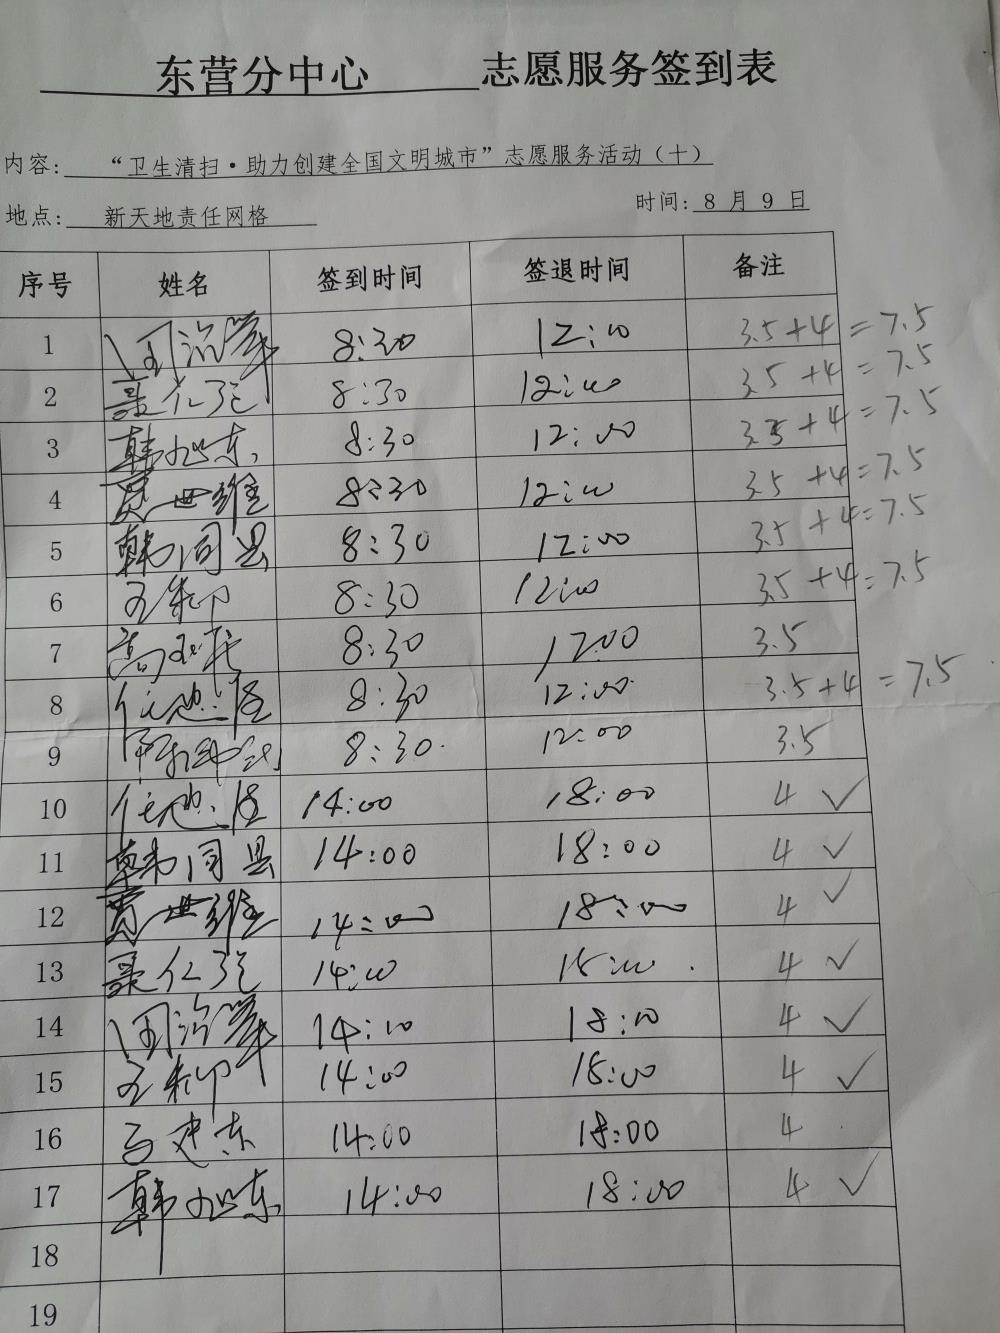 东营分中心 志愿服务签到表
内容: “卫生清扫·助力创建全国文明城市”志愿服务活动（十）
地点: 新天地责任网格 时间: 8 月 9 日
序号 姓名 签到时间 签退时间 备注
1 8:30 12:00 3.5+4=7.5
2 8:30 12:00 3.5+4=7.5
3 韩旭东 8:30 12:00 3.5+4=7.5
4 8:30 12:00 3.5+4=7.5
5 韩同县 8:30 12:00 3.5+4=7.5
6 8:30 12:00 3.5+4=7.5
7 8:30 12:00 3.5
8 8:30 12:00 3.5+4=7.5
9 8:30 12:00 3.5
10 14:00 18:00 4 ✓
11 韩同县 14:00 18:00 4 ✓
12 14:00 18:00 4 ✓
13 14:00 18:00 4 ✓
14 14:00 18:00 4 ✓
15 14:00 18:00 4 ✓
16 马建东 14:00 18:00 4
17 韩旭东 14:00 18:00 4 ✓
18
19